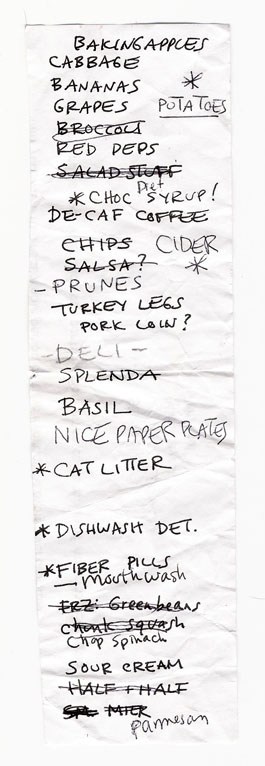 BAKING APPLES
CABBAGE
BANANAS *
GRAPES POTATOES
BROCCOLI
RED PEPS
SALAD STUFF
* CHOC Diet SYRUP!
DE-CAF COFFEE
CHIPS CIDER
SALSA? *
- PRUNES
TURKEY LEGS
PORK LOIN?
- DELI -
SPLENDA
BASIL
NICE PAPER PLATES
* CAT LITTER
* DISHWASH DET.
* FIBER PILLS
- mouthwash
FRZ: Greenbeans
chunk squash
Chop Spinach
SOUR CREAM
HALF + HALF
MILK
parmesan